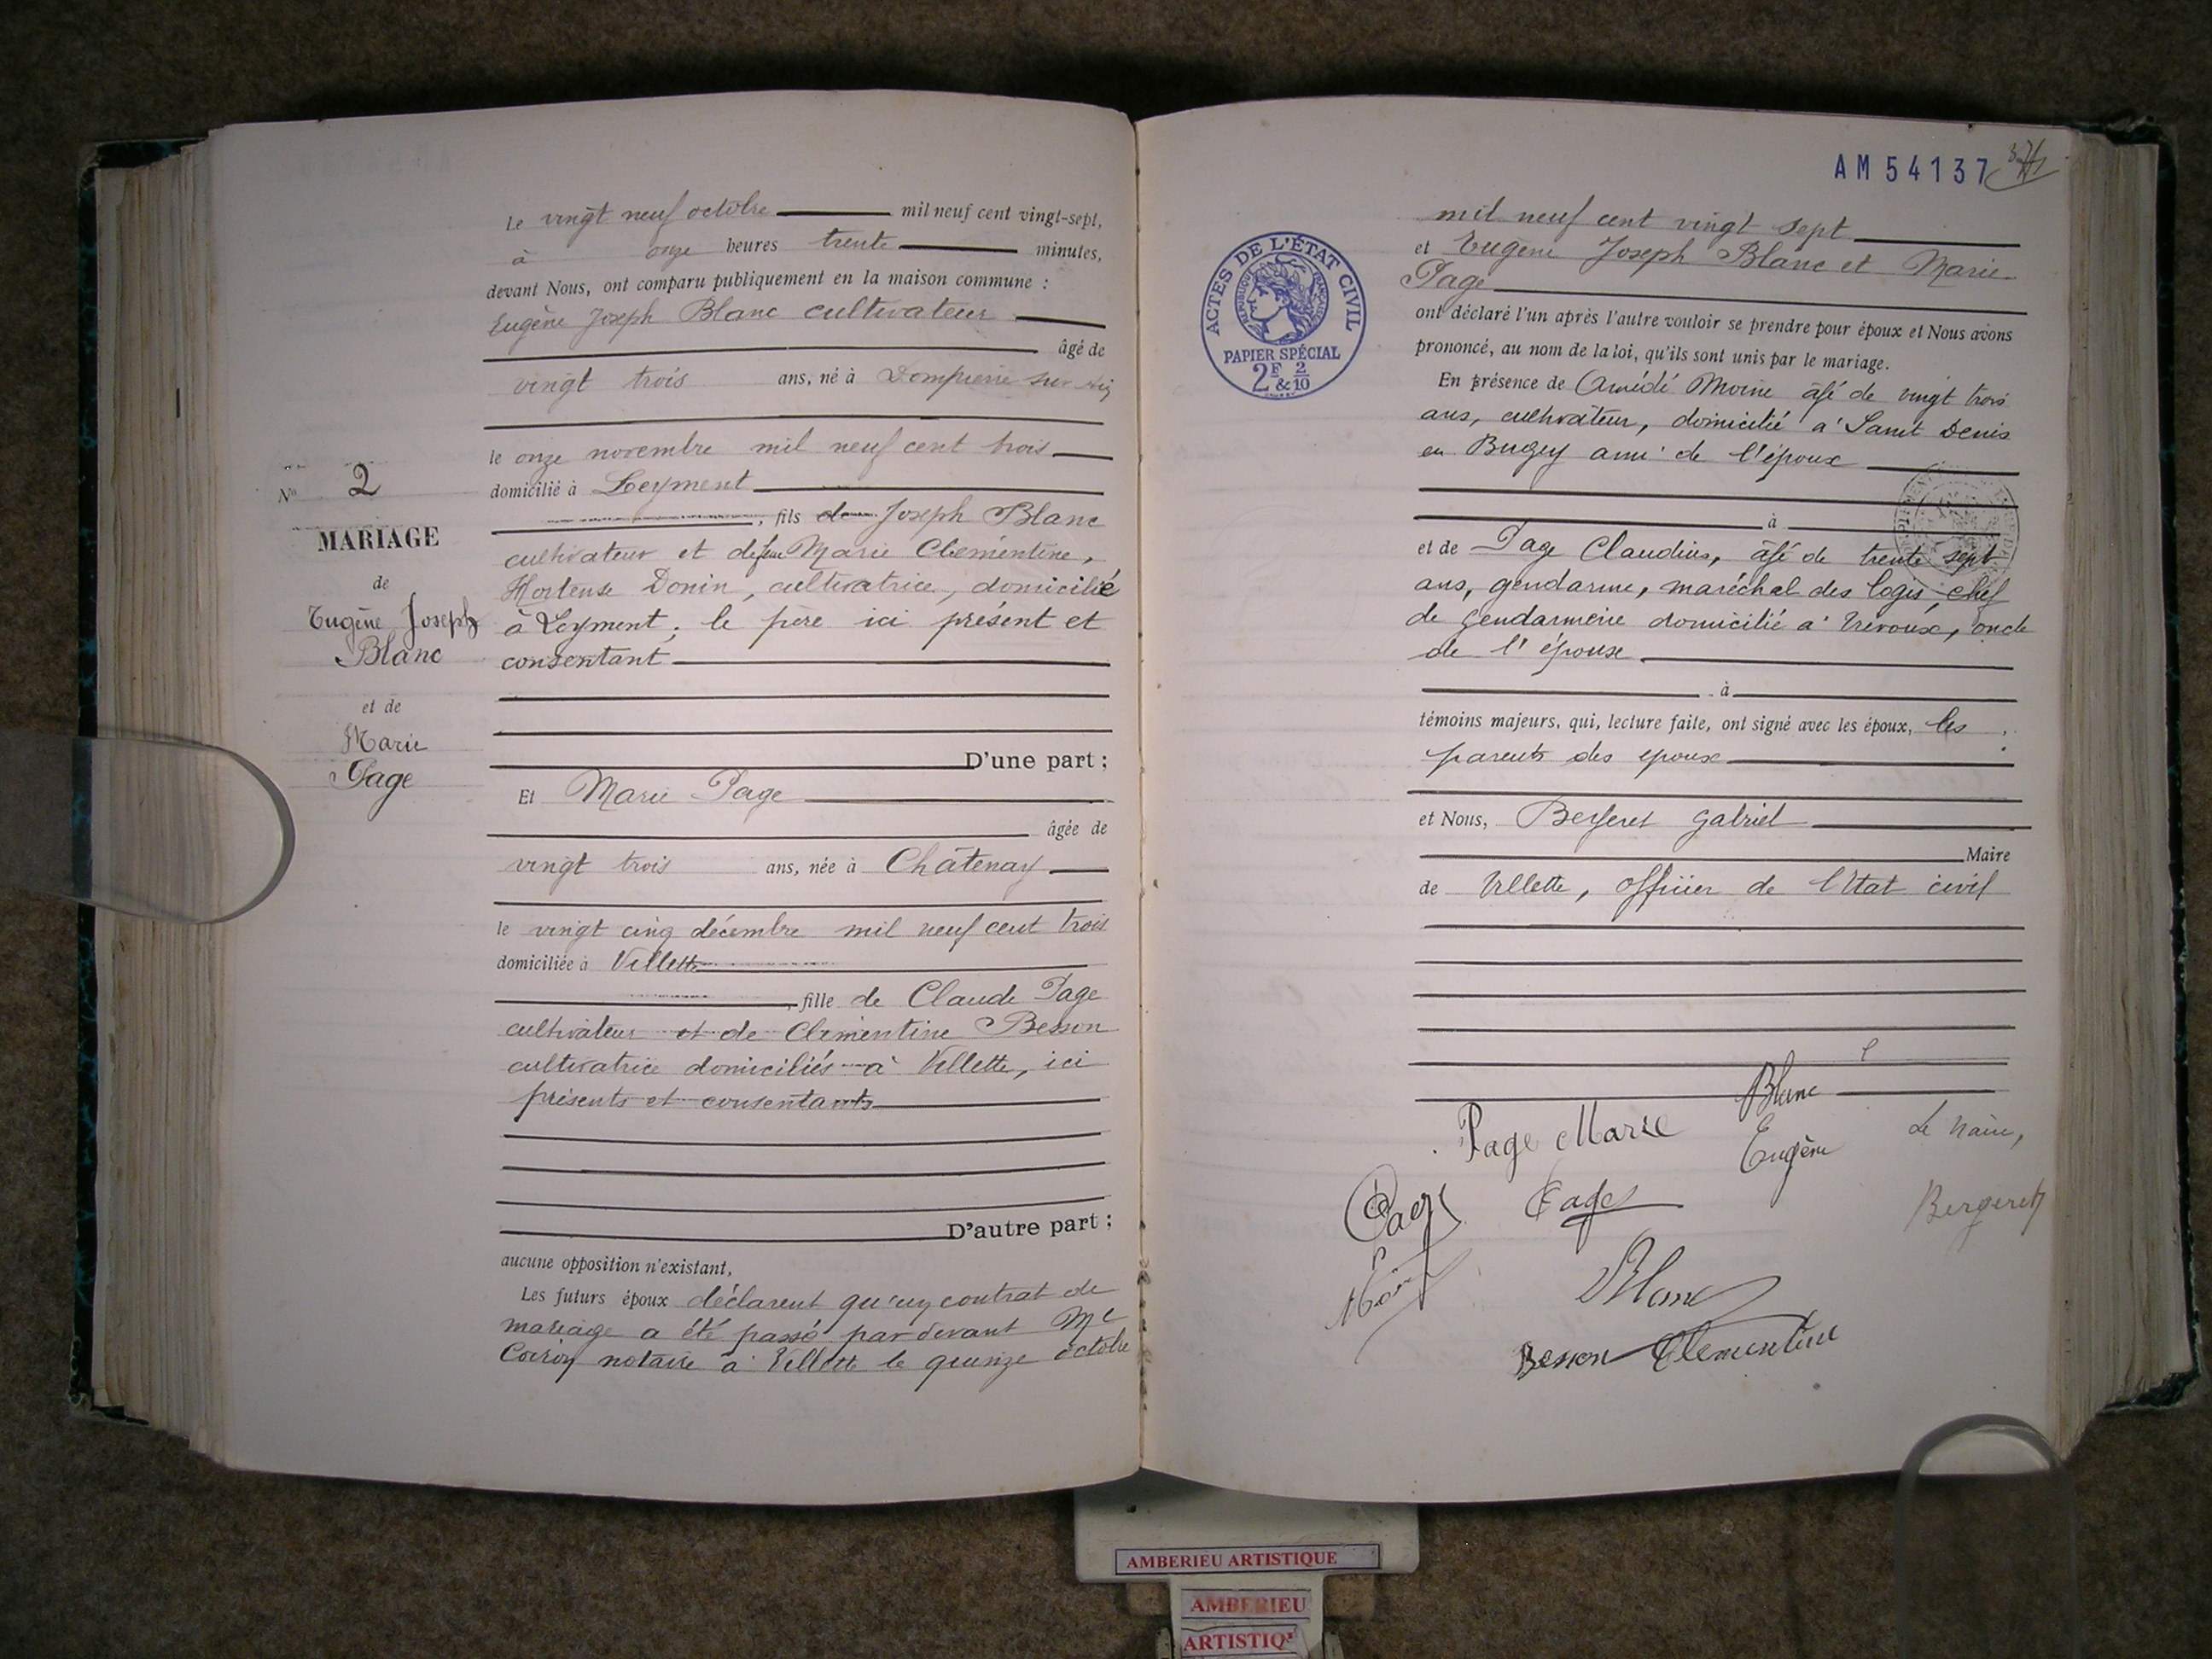 Le vingt neuf octobre mil neuf cent vingt-sept,
à onze heures trente minutes,
devant Nous, ont comparu publiquement en la maison commune :
Eugène Joseph Blanc cultivateur
âgé de
vingt trois ans, né à Dompierre sur Ain
le onze novembre mil neuf cent trois
domicilié à Leyment
, fils de Joseph Blanc
cultivateur et de feue Marie Clementine,
Hortense Donin, cultivatrice, domicilié
à Leyment; le père ici présent et
consentant
D'une part ;
Et Marie Page
âgée de
vingt trois ans, née à Châtenay
le vingt cinq décembre mil neuf cent trois
domiciliée à Villette
, fille de Claude Page
cultivateur et de Clementine Besson
cultivatrice domiciliés à Villette, ici
présents et consentants
D'autre part ;
aucune opposition n'existant,
Les futurs époux déclarent qu'un contrat de
mariage a été passé par devant Me
notaire à Villette le quinze octobre
No 2
MARIAGE
de
Eugène Joseph
Blanc
et de
Marie
Page
AM 54137
mil neuf cent vingt sept
et Eugène Joseph Blanc et Marie
Page
ont déclaré l'un après l'autre vouloir se prendre pour époux et Nous avons
prononcé, au nom de la loi, qu'ils sont unis par le mariage.
En présence de Amédé Moine âgé de vingt trois
ans, cultivateur, domicilié à Saint Denis
en Bugey ami de l'époux
à
et de Page Claudius, âgé de trente sept
ans, gendarme, maréchal des logis, chef
de gendarmerie domicilié à Trévoux, oncle
de l'épouse
à
témoins majeurs, qui, lecture faite, ont signé avec les époux, les
parents des epoux
et Nous, Bergeret Gabriel
Maire
de Villette, officier de l'Etat civil
Page Marie
Blanc
Eugène
Le Maire,
Bergeret
Page
Page
Blanc
Besson Clementine
ACTES DE L'ÉTAT CIVIL
RÉPUBLIQUE FRANÇAISE
PAPIER SPÉCIAL
2F & 2/10
AMBERIEU ARTISTIQUE
AMBERIEU
ARTISTIQ